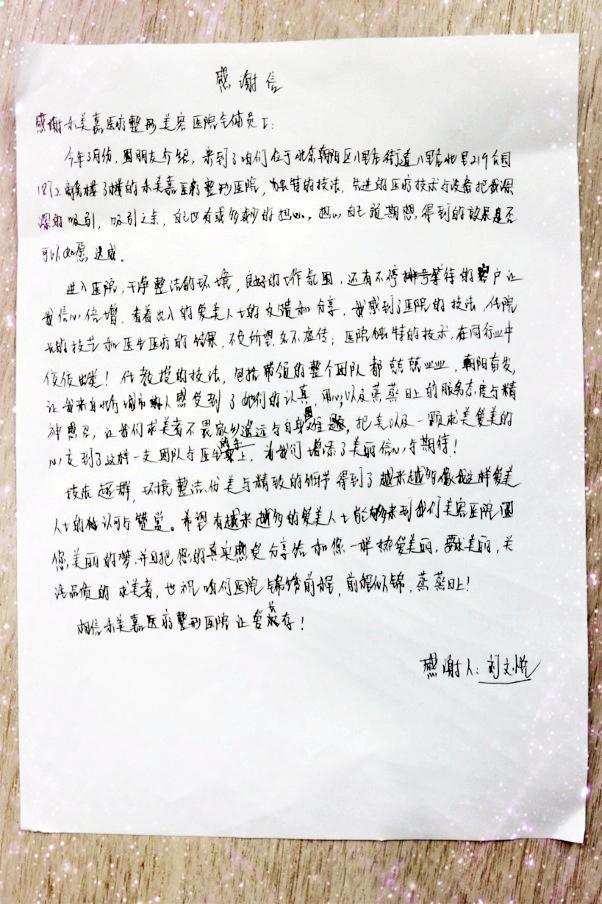 感谢信
感谢禾美嘉医疗整形美容医院全体员工：
今年3月份，跟朋友介绍，来到了咱们在位于北京朝阳区八里庄街道八里庄北里219合同
的禾美嘉医疗整形医院，独特的技法，先进的医疗技术与设备把我深
深的吸引，吸引之余，自己也有或多或少的担心，担心自己预期想得到的效果是否
可以如愿达成。
进入医院，干净整洁的环境，良好的工作氛围，还有不停排号等待的客户让
我信心倍增，看着出入的爱美人士的交谈和分享，我感到了医院的技法，任院
长的技艺和医生医疗的结果，不负所望名不虚传；医院独特的技术，在同行业中
佼佼出类！任教授的技法，包括带领的整个团队都兢兢业业，朝阳奋发，
让我来自外行人感受到了她们的认真，用心以及蒸蒸日上的服务态度与精
神感召，让我们求美者不畏遥远与自身难题，把美以及一颗求美爱美的
心交到了这样一支团队与医生手上，为我们增添了美丽信心与期待！
技术超群，环境整洁优美与精致的细节得到了越来越多像我这样爱美
人士的认可与赞赏。希望有越来越多的爱美人士能够来到我们美容医院圆
您美丽的梦，并且把您的真实感受分享给和您一样热爱美丽，要求美丽，关
注品质的求美者，也祝咱们医院锦绣前程，前程似锦，蒸蒸日上！
相信禾美嘉医疗整形医院让爱永存！
感谢人：刘文悦